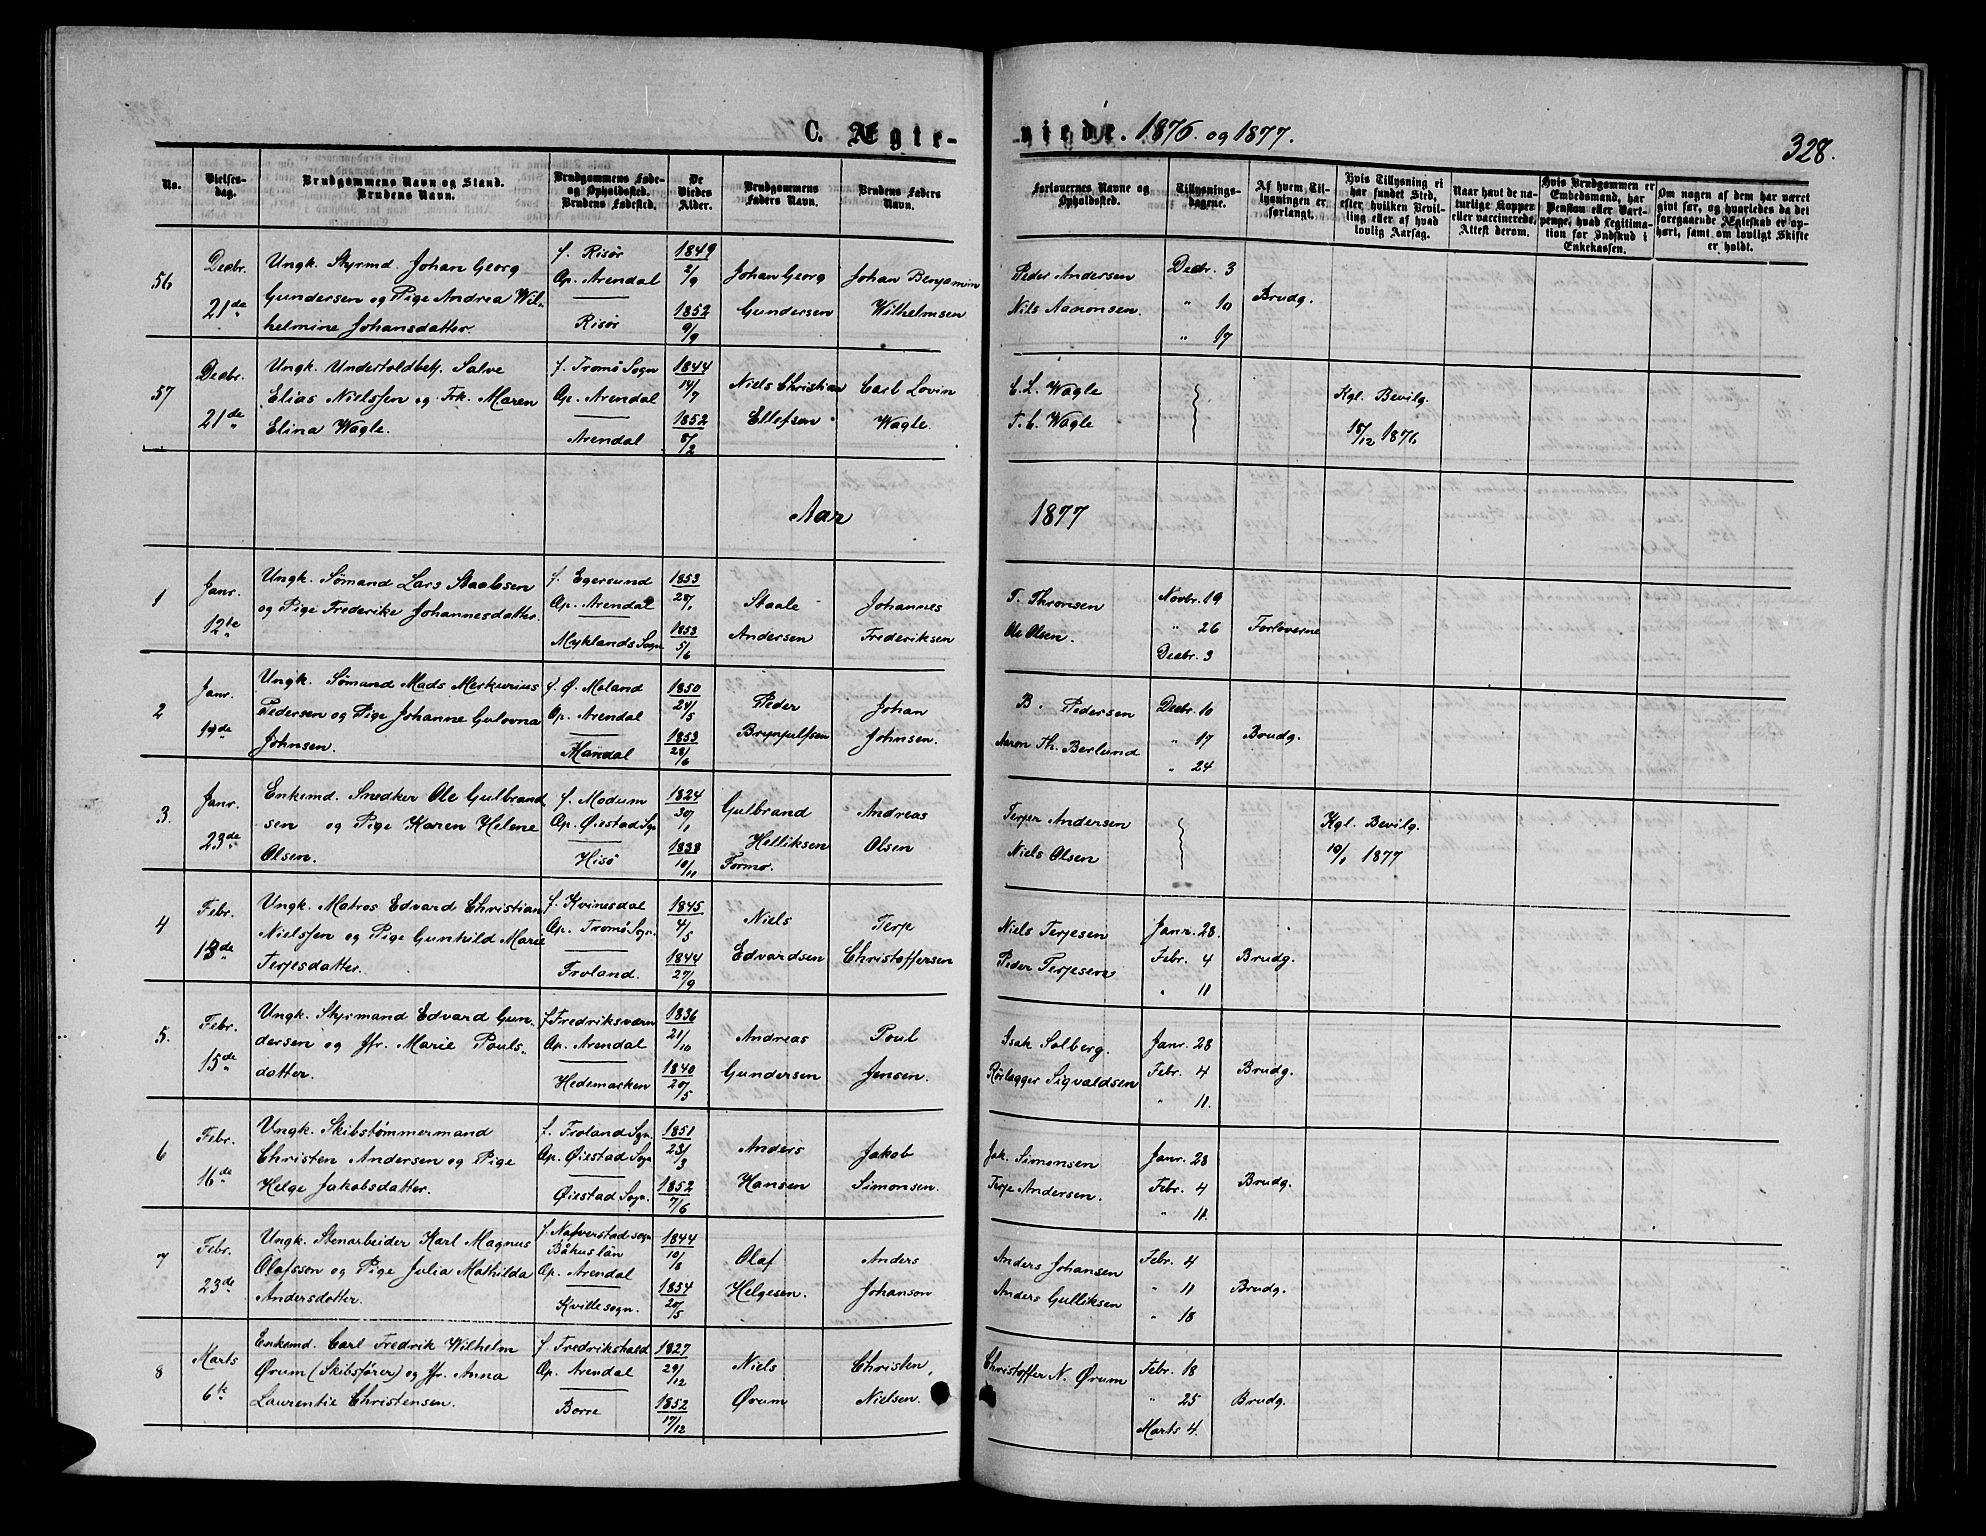 C. Ægte-
viede. 1876. og 1877.
328.
No.
Vielses-
dag.
Brudgommens Navn og Stand.
Brudens Navn.
Brudgommens Føde-
og Opholdssted.
Brudens Fødested.
De
Viedes
Alder.
Brudgommens
Faders Navn.
Brudens Faders
Navn.
Forlovernes Navne og
Opholdssted.
Tillysnings-
dagene.
Af hvem Til-
lysningen er
forlangt.
Hvis Tillysning ei
har fundet Sted,
efter hvilken Bevil-
ling eller af hvad
lovlig Aarsag.
Naar havt de na-
turlige Kopper
eller vaccinerede,
Attest derom.
Hvis Brudgommen er
Embedsmand, har
Pension eller Vart-
penge, hvad Legitima-
tion for Indskud i
Enkekassen.
Om nogen af dem har været
gift før, og hvorledes da det
foregaaende Ægteskab er op-
hørt, samt om lovligt Skifte
er holdt.
56
Decbr.
21de
Ungk. Styrmd Johan Georg
Gundersen og Pige Andrea Wil-
helmine Johansdatter.
f. Risør
Op. Arendal
Risør
1849
2/9
1852
9/9
Johan Georg
Gundersen
Johan Benjamin
Wilhelmsen
Peder Andersen
Nils Aaronsen.
Decbr. 3
" 10
" 17
Brudg.
57
Decbr.
21de
Ungk. Undertoldbetj. Salve
Elias Nielssen og Frk. Maren
Elina Wagle.
f. Tromø Sogn
Op. Arendal
Arendal
1844
14/7
1852
8/2
Niels Christian
Ellefsen
Carl Lovin
Wagle.
C. L. Wagle
T. C. Wagle
Kgl. Bevilg.
18/12 1876
Aar
1877
1
Janr.
12te
Ungk. Sømand Lars Staalesen
og Pige Frederike Johannesdatter.
f. Egersund
Op. Arendal
Myklands Sogn
1853
28/1
1853
5/6
Staale
Andersen
Johannes
Frederiksen
T. Thronsen
Ole Olsen.
Novbr. 19
" 26
Decbr. 3
Forloverne
2
Janr.
19de
Ungk. Sømand Mads Merkurius
Pedersen og Pige Johanne Gulovna
Johnsen.
f. Ø. Moland
Op. Arendal
Mandal
1850
24/5
1853
28/6
Peder
Brynjulfsen
Johan
Johnsen.
B. Pedersen
Aaron Th. Berlund
Decbr. 10
" 17
" 24
Brudg.
3.
Janr.
23de
Enkemd. Snedker Ole Gulbrand
sen og Pige Karen Helene
Olsen.
f. Modum
Op. Øiestad Sgn
Hisø
1824
30/1
1838
10/11
Gulbrand
Helliksen
Formo.
Andreas
Olsen
Terjer Andersen
Niels Olsen
Kgl. Bevilg.
10/1 1877
4
Febr.
13de
Ungk. Matros Edvard Christian
Nielssen og Pige Gunhild Marie
Terjesdatter.
f. Kvinesdal
Op. Tromø Sogn.
Froland.
1845
4/5
1844
27/9
Niels
Edvardsen
Terje
Christoffersen
Niels Terjesen
Peder Terjesen
Janr. 28.
Febr. 4
" 11
Brudg.
5.
Febr.
15de
Ungk. Styrmand Edvard Gun-
dersen og Jfr. Marie Pouls-
datter.
f. Fredriksværn
Op. Arendal
Hedemarken
1836
21/10
1840
20/5
Andreas
Gundersen
Poul
Jensen.
Isak Solberg.
Rørlægger Sigvaldsen
Janr. 28
Febr. 4
" 11.
Brudg.
6
Febr.
16de
Ungk. Skibstømmermand
Christen Andersen og Pige
Helge Jakobsdatter.
f. Froland Sgn.
Op. Øiestad Sogn
Øiestad Sogn.
1851
23/3
1852
7/6
Anders
Hansen
Jakob
Simonsen.
Jak. Simonsen
Terje Andersen.
Janr. 28
Febr. 4
" 11.
Brudg.
7
Febr.
23de
Ungk. Stenarbeider Karl Magnus
Olafsson og Pige Julia Mathilda
Andersdotter.
f. Nafverstad sogn
Båhuslän
Op. Arendal
Kville sogn.
1844
10/8
1854
20/5
Olaf
Helgesen.
Anders
Johanson
Anders Johansen
Anders Gulliksen
Febr. 4
" 11
" 18
Brudg.
8
Marts
6te
Enkemd. Carl Fredrik Wilhelm
Ørum (Skibsfører) og Jfr. Anna
Laurentie Christensen.
f. Fredrikshald
Op. Arendal
Borre
1827
29/12
1852
17/12
Niels
Ørum
Christen
Nielsen.
Christoffer N. Ørum
Febr. 18
" 25
Marts 4.
Brudg.